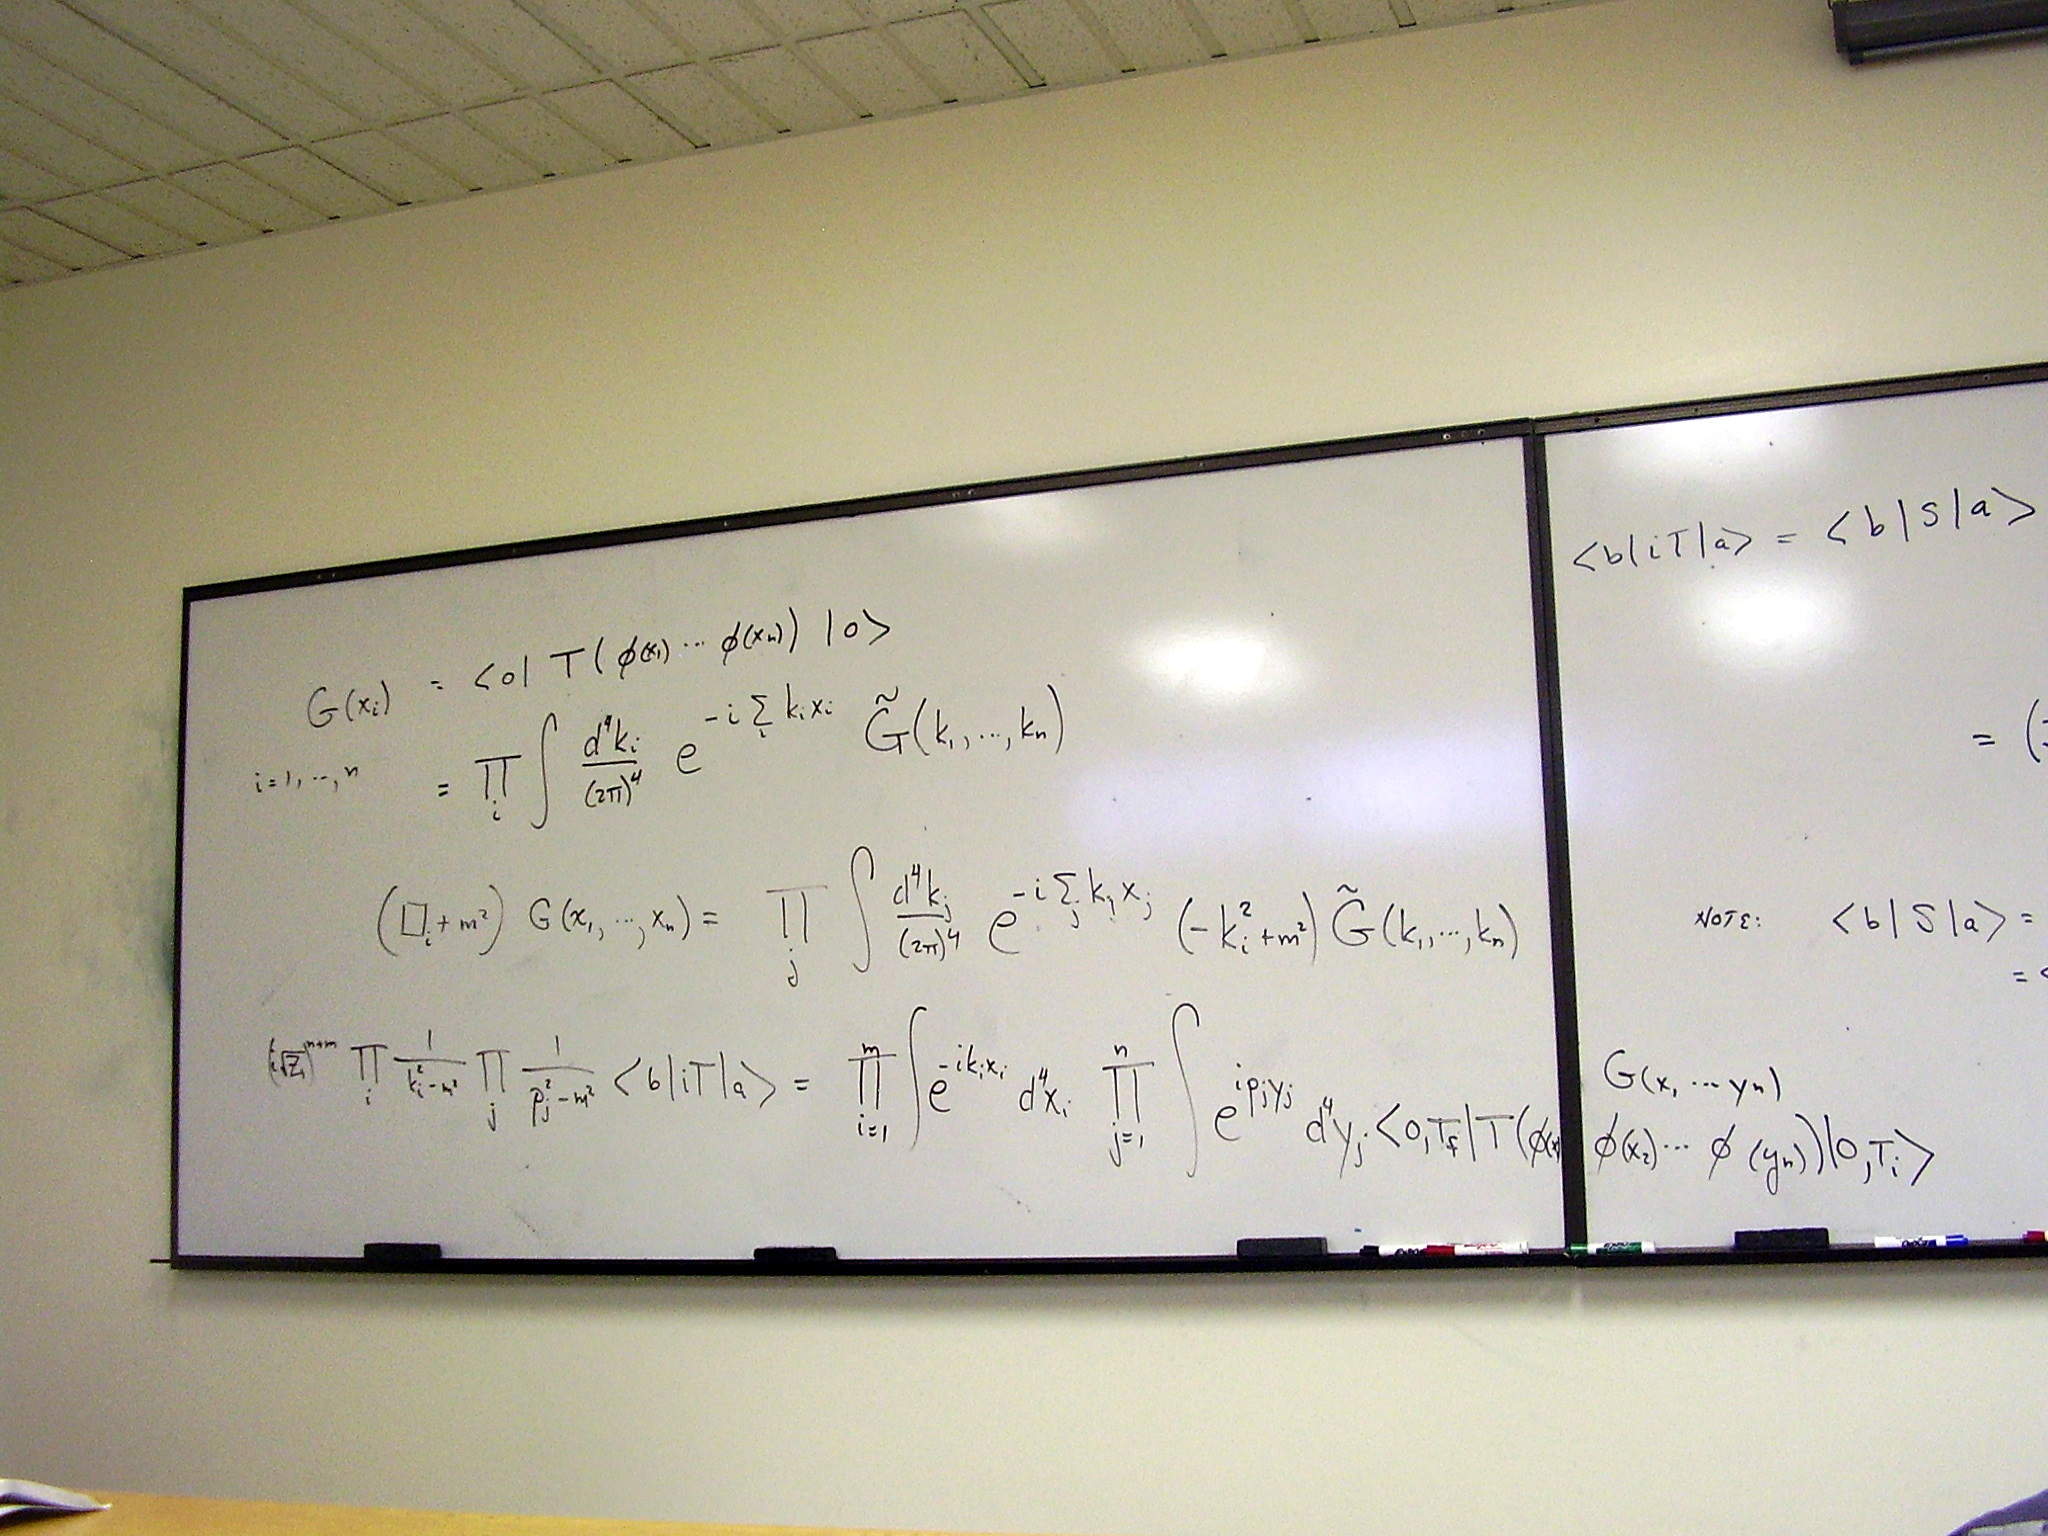 G(xᵢ) = <0| T(ϕ(x₁) ⋯ ϕ(xₙ)) |0>
i=1, ⋯, n = ∏ᵢ ∫ d⁴kᵢ/(2π)⁴ e^{-i ∑ᵢ kᵢxᵢ} G̃(k₁, ⋯, kₙ)
(□ᵢ + m²) G(x₁, ⋯, xₙ) = ∏ⱼ ∫ d⁴kⱼ/(2π)⁴ e^{-i ∑ⱼ kⱼxⱼ} (-kᵢ² + m²) G̃(k₁, ⋯, kₙ)
(i√Z)^{n+m} ∏ᵢ 1/(kᵢ² - m²) ∏ⱼ 1/(pⱼ² - m²) <b|iT|a> = ∏_{i=1}^{m} ∫ e^{-ikᵢxᵢ} d⁴xᵢ ∏_{j=1}^{n} ∫ e^{ipⱼyⱼ} d⁴yⱼ <0,T_f| T(ϕ(x₁) ϕ(x₂) ⋯ ϕ(yₙ)) |0,Tᵢ>
<b|iT|a> = <b|S|a>
= (
NOTE: <b|S|a> =
= <
G(x₁ ⋯ yₙ)
EXPO
EXPO